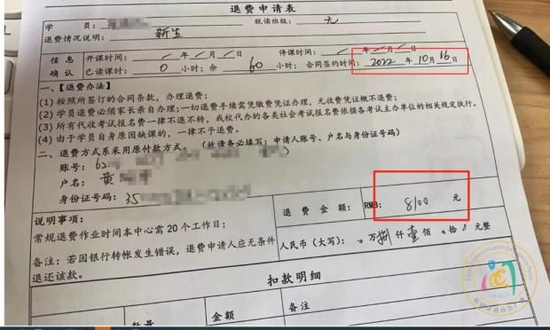 退费申请表
学 员： 就读班级： 元
退费情况说明： 新生
信息 开课时间： / 年 / 月 / 日 停课时间： / 年 / 月 / 日
确认 已读课时： 0 小时；余 60 小时；合同签约时间：2022 年 10 月 16 日
一、【退费办法】
(1) 按照所签订的合同条款，办理退费；
(2) 学员退费必须家长亲自办理；一切退费手续需凭缴费凭证办理，无收费凭证概不退费；
(3) 所有代收考试报名费一律不退不转，我校代办的各类社会考试报名费依据各考试主办单位的相关规定执行。
(4) 由于学员自身原因缺课的，一律不予退费。
二、退费方式系采用原付款方式。（敬请务必填写：申请人账号、户名与身份证号码）
账号： 62
户名： 黄
身份证号码： 35
说明事项： 退 费 金 额： RMB： 8100 元
常规退费作业时间本中心需 20 个工作日；
人民币（大写）： 万 捌 仟 壹 佰 拾 元整
备注：若因银行转帐发生错误，退费申请人应无条件
退还该款。
扣款明细
数量 金额 备注